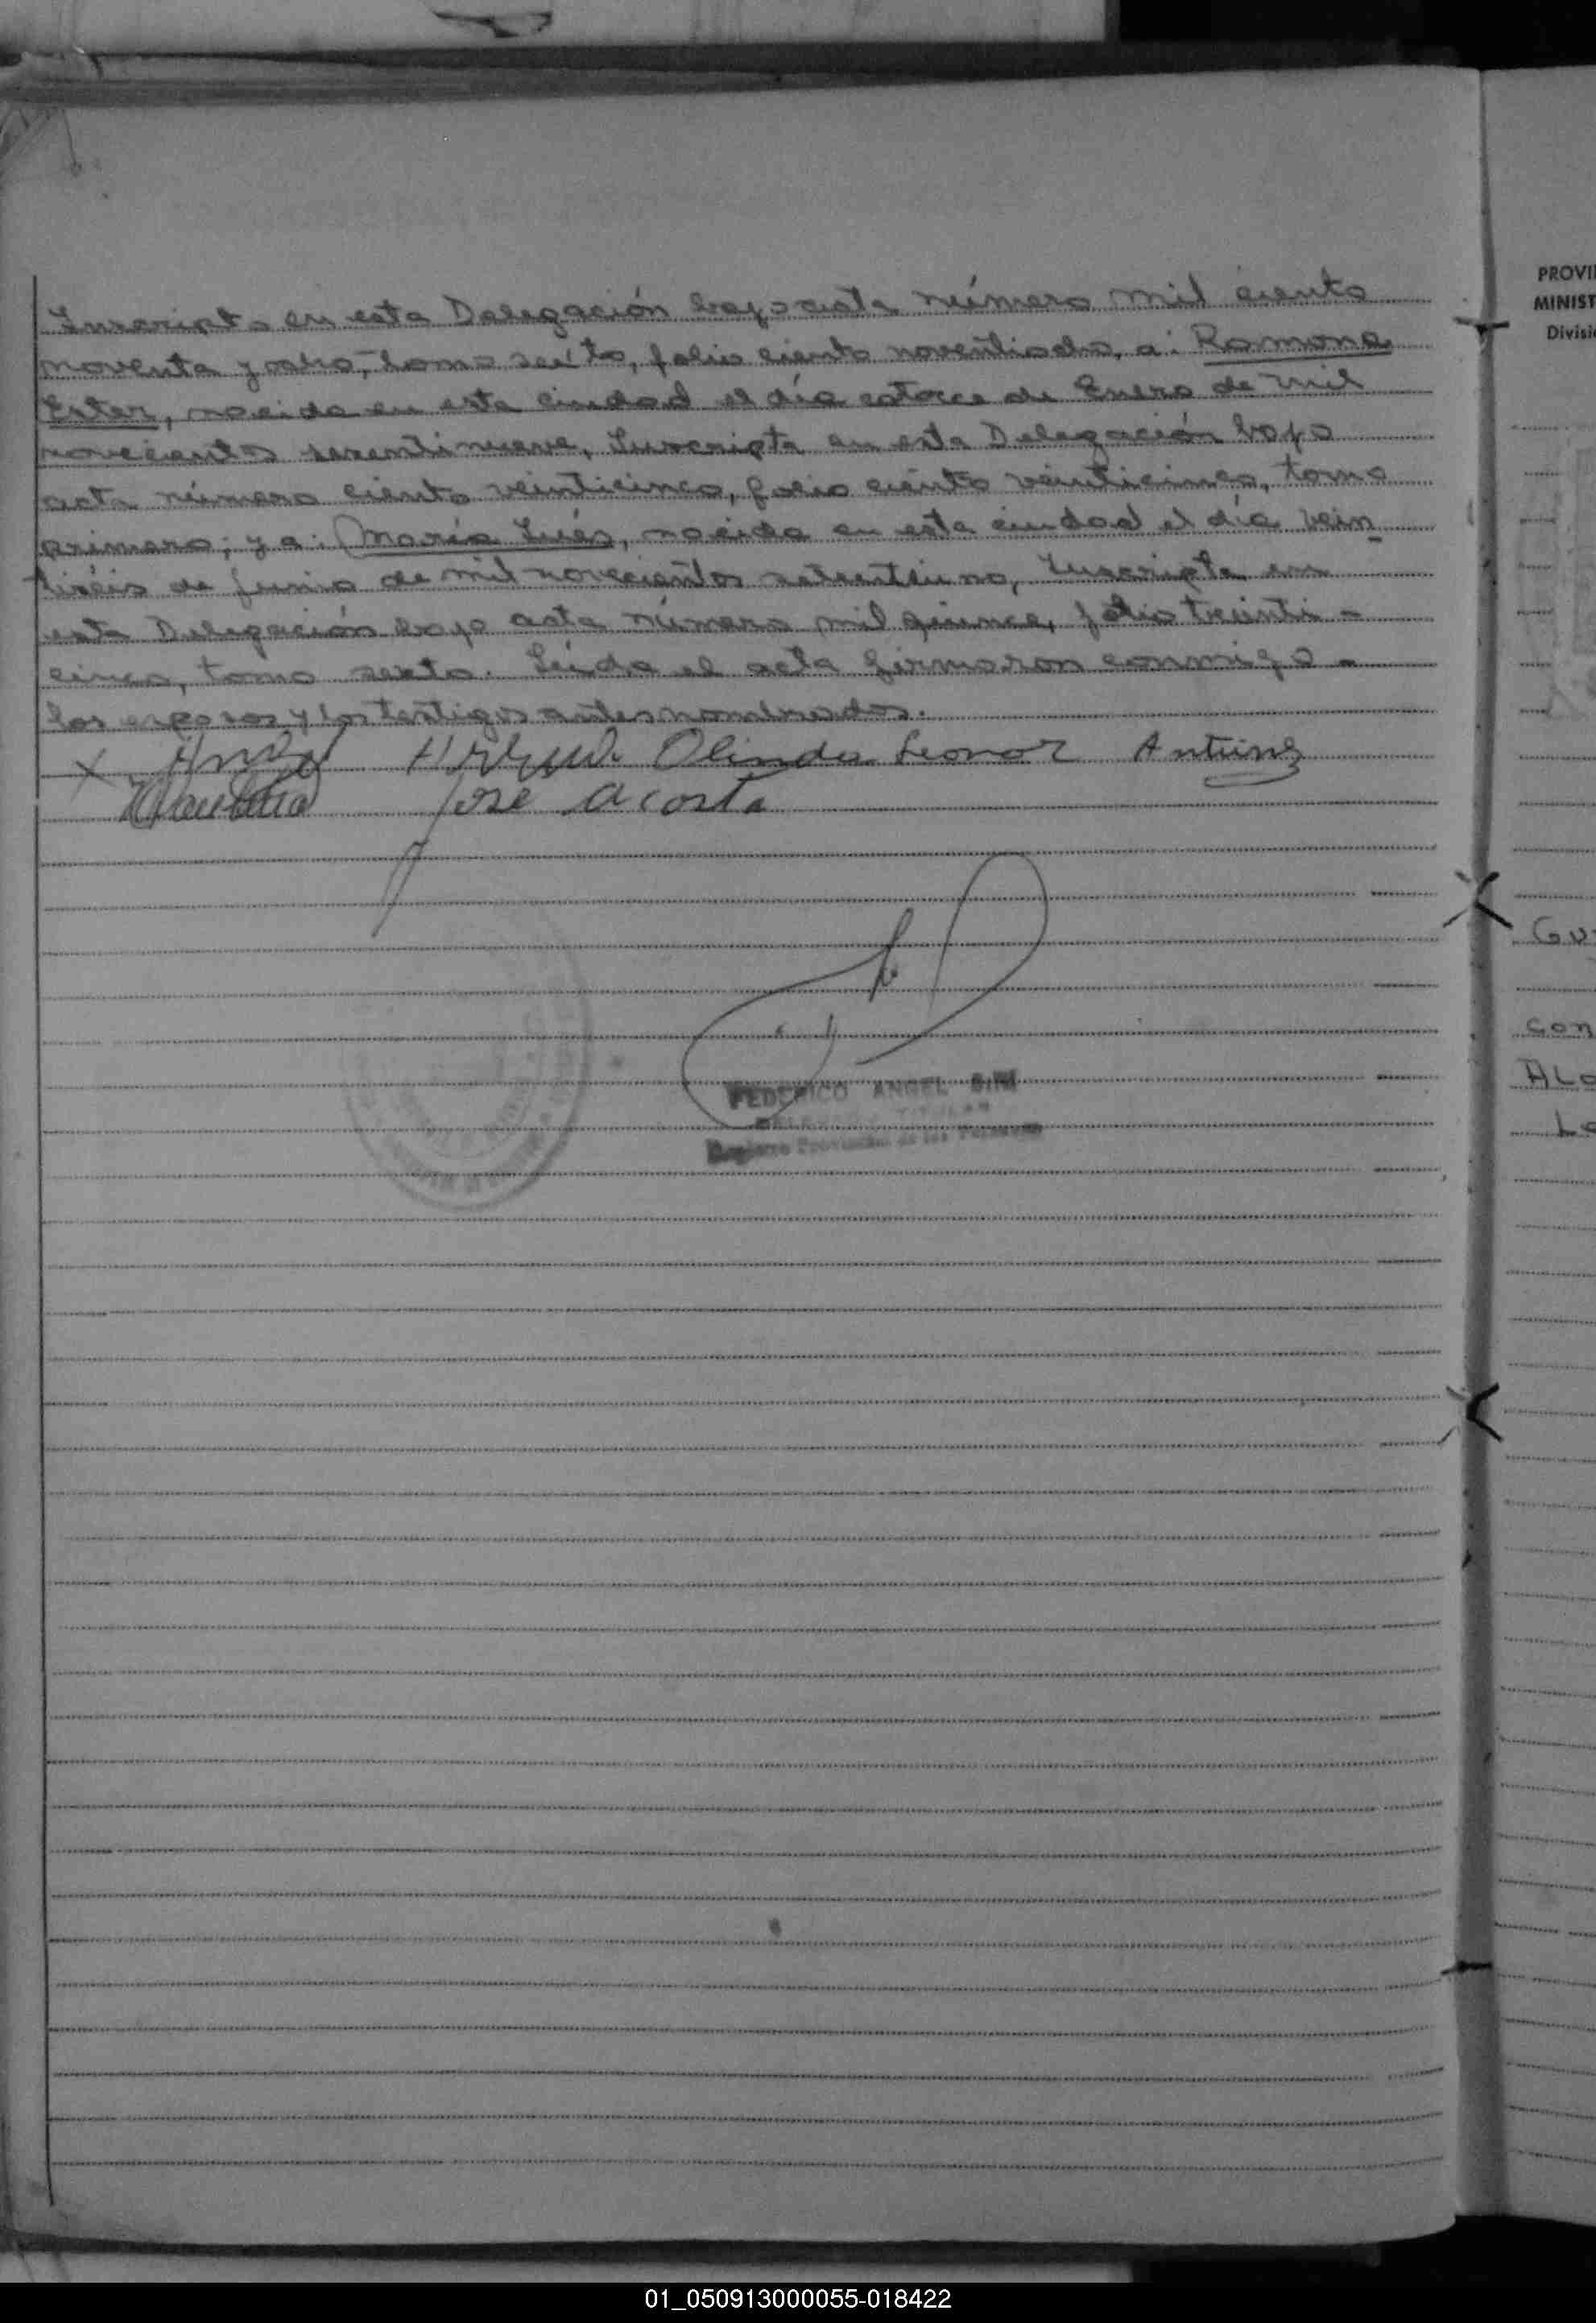 Inscripto en esta Delegación bajo acta número mil ciento
noventa y ocho, tomo sexto, folio ciento noventiocho, a: Ramona
Ester, nacida en esta ciudad el día catorce de Enero de mil
novecientos sesentinueve, Inscripta en esta Delegación bajo
acta número ciento veinticinco, folio ciento veinticinco, tomo
primero; y a: María Inés, nacida en esta ciudad el día vein
tiséis de Junio de mil novecientos setentiuno, Inscripta en
esta Delegación bajo acta número mil quince, folio treinti-
cinco, tomo sexto. Leída el acta firmaron conmigo -
los esposos y los testigos antes nombrados.
X Olinda Leonor Antunez
José Acosta
FEDERICO ANGEL
DELEGADO TITULAR
Registro Provincial de las Personas
PROVI
MINIST
Divisi
Gu
con
ALO
Lo
01_050913000055-018422